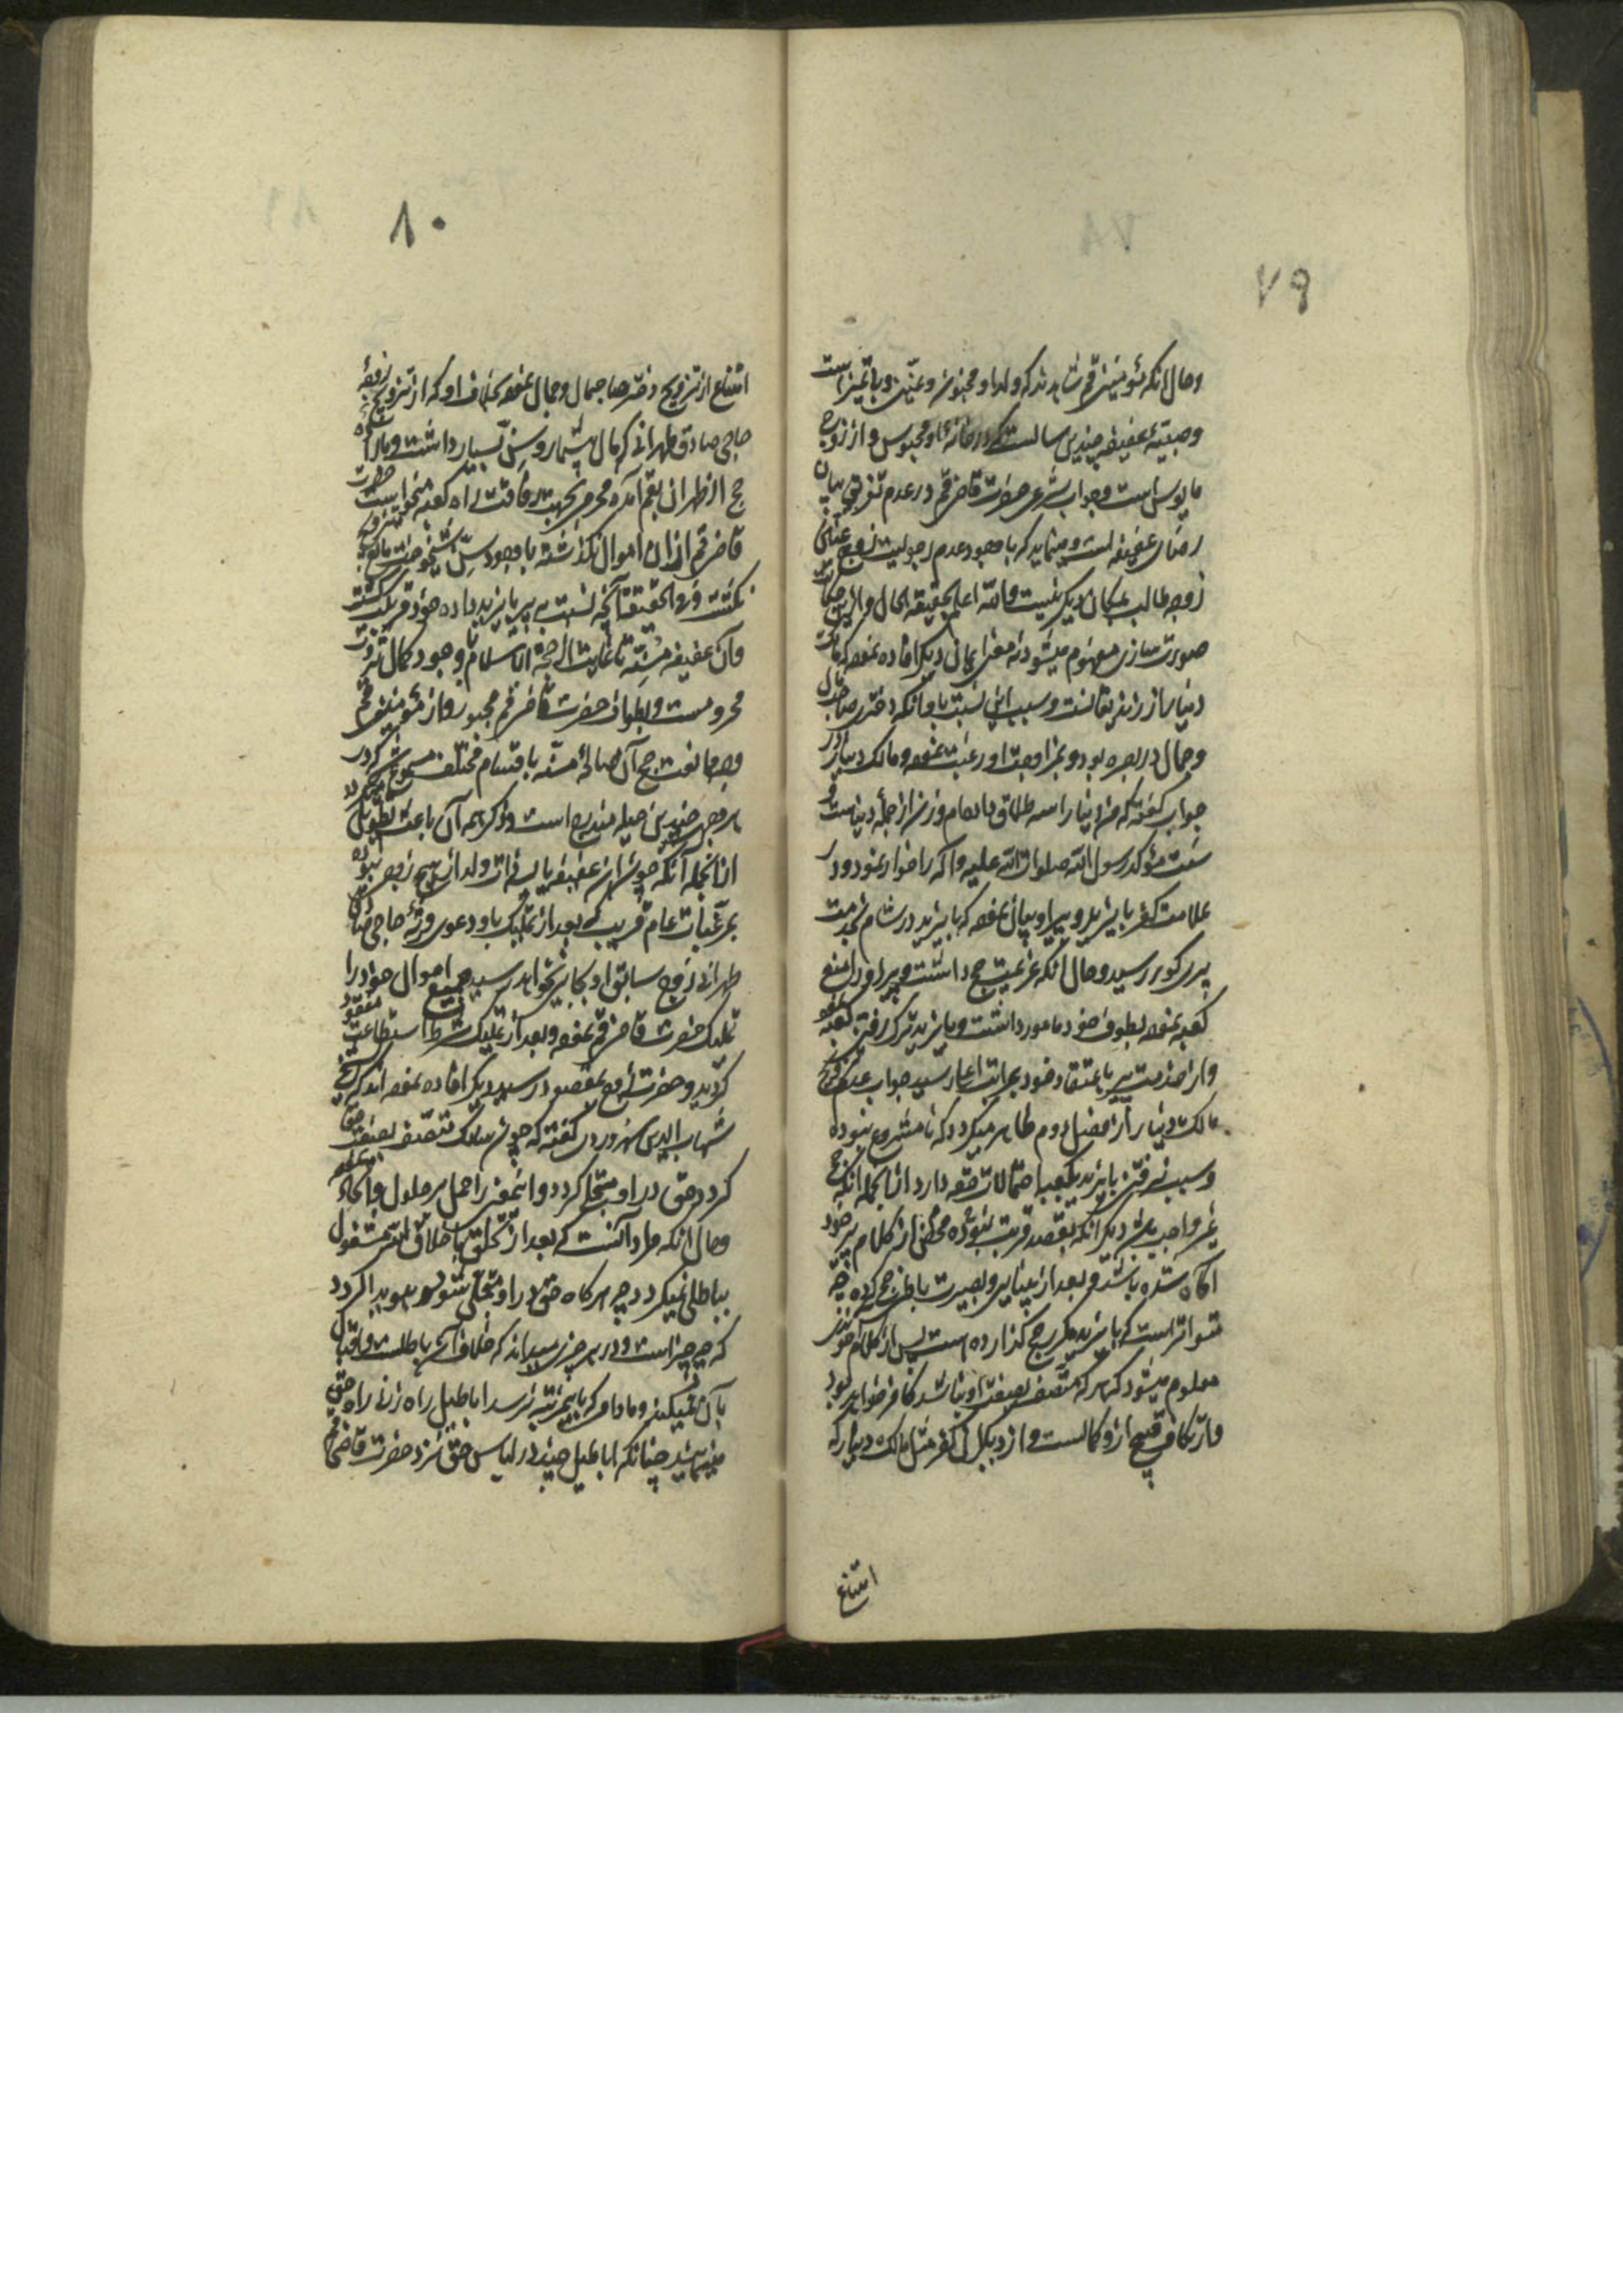 ۷۹
وحال آنکه مؤمنین قم شاهدند که ولد او مجنون و عنّین و بی تمیز است
وصبیّهٔ عفیفه چندین سالست که در خانهٔ او محبوس و از زوج
مایوس است وجواب شرعی حضرت قاضی قم در عدم تفریق بیان
رضای عفیفه است ومیفرماید که با وجود عدم رجولیت زوج
زوجه طالب مکان دیگر نیست والله اعلم بحقیقه الحال و از این
صورت سازی مفهوم میشود نه معنی ایمانی دیگر افاده نموده که مالک
دینار از زندیقانست وسبب این نسبت با او آنکه دختری صاحب مال
وجمال در بصره بود و بمزاوجت او رغبت نموده و مالک دینار در
جواب گفته که من دنیا را سه طلاق داده‌ام و زن از جملهٔ دنیاست و
سنت مؤکد رسول الله صلوات الله علیه وآله را خوار نمود و در
علامت کفر بایزید و پیر او بیان نموده که بایزید در شام بخدمت
پیر کور رسید وحال آنکه عزیمت حج داشت و پیر او را منع
کعبه نموده بطوف خود مامور داشت و بایزید ترک رفتن کعبه نموده
و از خدمت پیر باعتقاد خود بمراتب اعلی رسید جواب عدم تزویج
مالک دینار از فصل دوم ظاهر میگردد که نامشروع نبوده
وسبب نرفتن بایزید بکعبه احتمالات متعدده دارد از آنجمله آنکه حج
غیر واجب باشد دیگر آنکه بقصد قربت نبوده محض از کلام پیر خود
آگاه شده باشد و بعد از بینایی و بصیرت باطن حج کرده چه
متواتر است که بایزید مکرر حج گذارده است پس از کلام
معلوم میشود که هر که متصف بصفت او باشد کافر خواهد بود
و ارتکاب قبیح از و کمالست و از دیگران کفر مثل مالک دینار که
امتناع
۸۰
امتناع از تزویج دختر صاحب مال وجمال نموده بخلاف او که از تزویج زوجهٔ
حاجی صادق طهرانی که مال بیشمار و سن بسیار داشت و بارادهٔ
حج از طهران بقم آمده محرمی بجهت رفاقت راه کعبه میخواست حضرت
قاضی قم از آن اموال نگذشته با وجود سن شیخوخیت
نگشت و فی الحقیقة آنچه نسبت به پیر بایزید داده خود مرتکب گشته
وآن عفیفه مسنّه تا غایت از حجة الاسلام با وجود کمال ثروت
محرومست و بطواف حضرت قاضی قم مجبور و از مؤمنین قم
وجه ممانعت حج آن صالحهٔ مسنّه باقسام مختلف مسموع میگردد که در
هر وجه چندین حیله مندرج است و ذکر همه آن باعث تطویل میگردد
از آنجمله آنکه چون آن عفیفه یایسه از ولد از هیچ زوج نبوده
بمرغبات عام فریب که بعد از تملیک باو دعوی ورثهٔ حاجی صادق
طهرانی زوج سابق او بجایی نخواهد رسید جمیع اموال خود را
تملیک حضرت قاضی قم نموده و بعد از تملیک شرط استطاعت مفقود
گردید و حضرت قاضی بمقصود رسید دیگر افاده نموده اند که شیخ
شهاب الدین سهروردی گفته که چون سالک متصف بصفت
گردد حق در او متجلی گردد و اینمعنی را حمل بر حلول و اتحاد نموده
وحال آنکه مراد آنست که بعد از تخلق باخلاق الله مشغول
بباطلی نمیگردد چه هرگاه حق در او متجلی شود هویدا گردد
که چه چیز است و در هر چیزی میداند که خلاف آن باطلست و اقبال
بآن نمیکند و مادام که باین مرتبه نرسد اباطیل راه زنی راه حق
مینمایند چنانکه اباطیل چند در لباس حق نزد حضرت قاضی قم